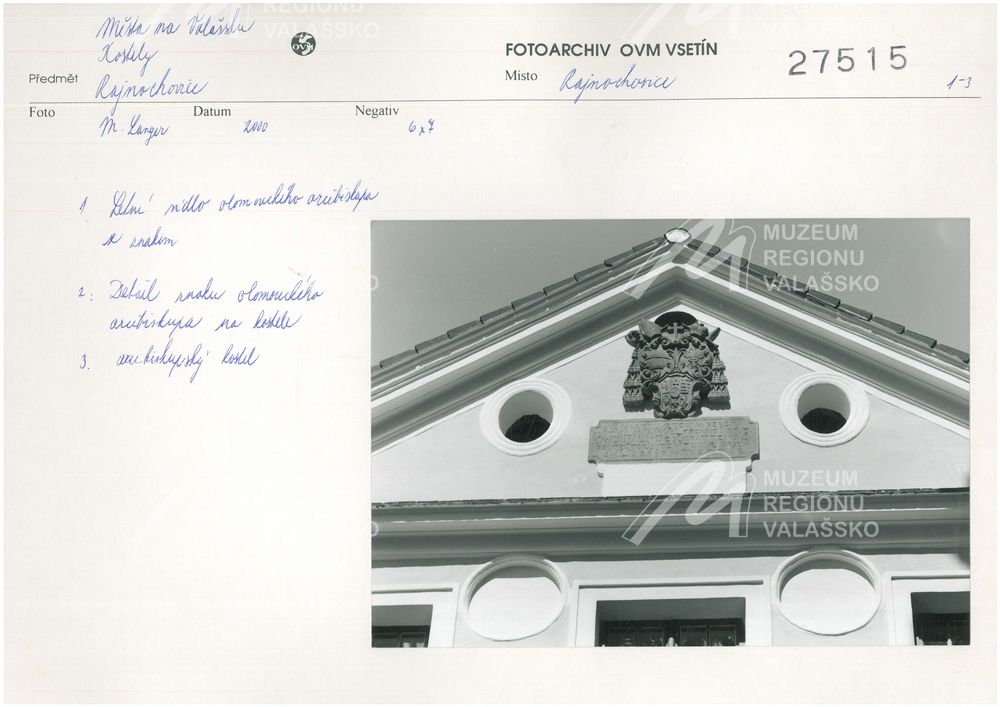 Města na Valašsku
Kostely
Předmět Rajnochovice
OVM
FOTOARCHIV OVM VSETÍN
Místo Rajnochovice
27515
1-3
Foto M. Langer
Datum 2000
Negativ 6x7
1. Letní sídlo olomouckého arcibiskupa
se znakem
2. Detail znaku olomouckého
arcibiskupa na kostele
3. arcibiskupský kostel
MUZEUM
REGIONU
VALAŠSKO
MUZEUM
REGIONU
VALAŠSKO
VALAŠSKO